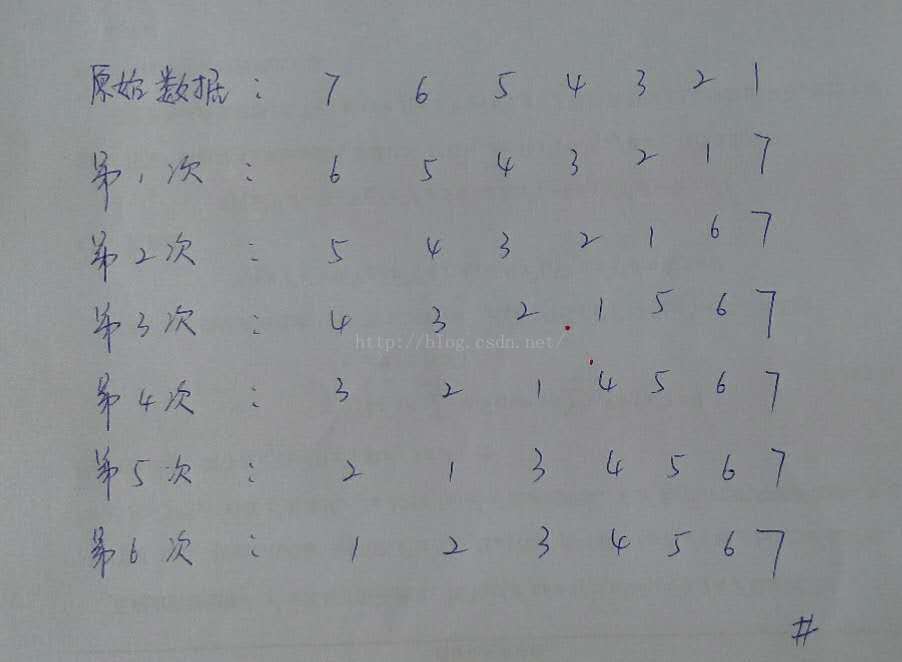 原始数据: 7 6 5 4 3 2 1
第1次: 6 5 4 3 2 1 7
第2次: 5 4 3 2 1 6 7
第3次: 4 3 2 1 5 6 7
http://blog.csdn.net/
第4次: 3 2 1 4 5 6 7
第5次: 2 1 3 4 5 6 7
第6次: 1 2 3 4 5 6 7
#